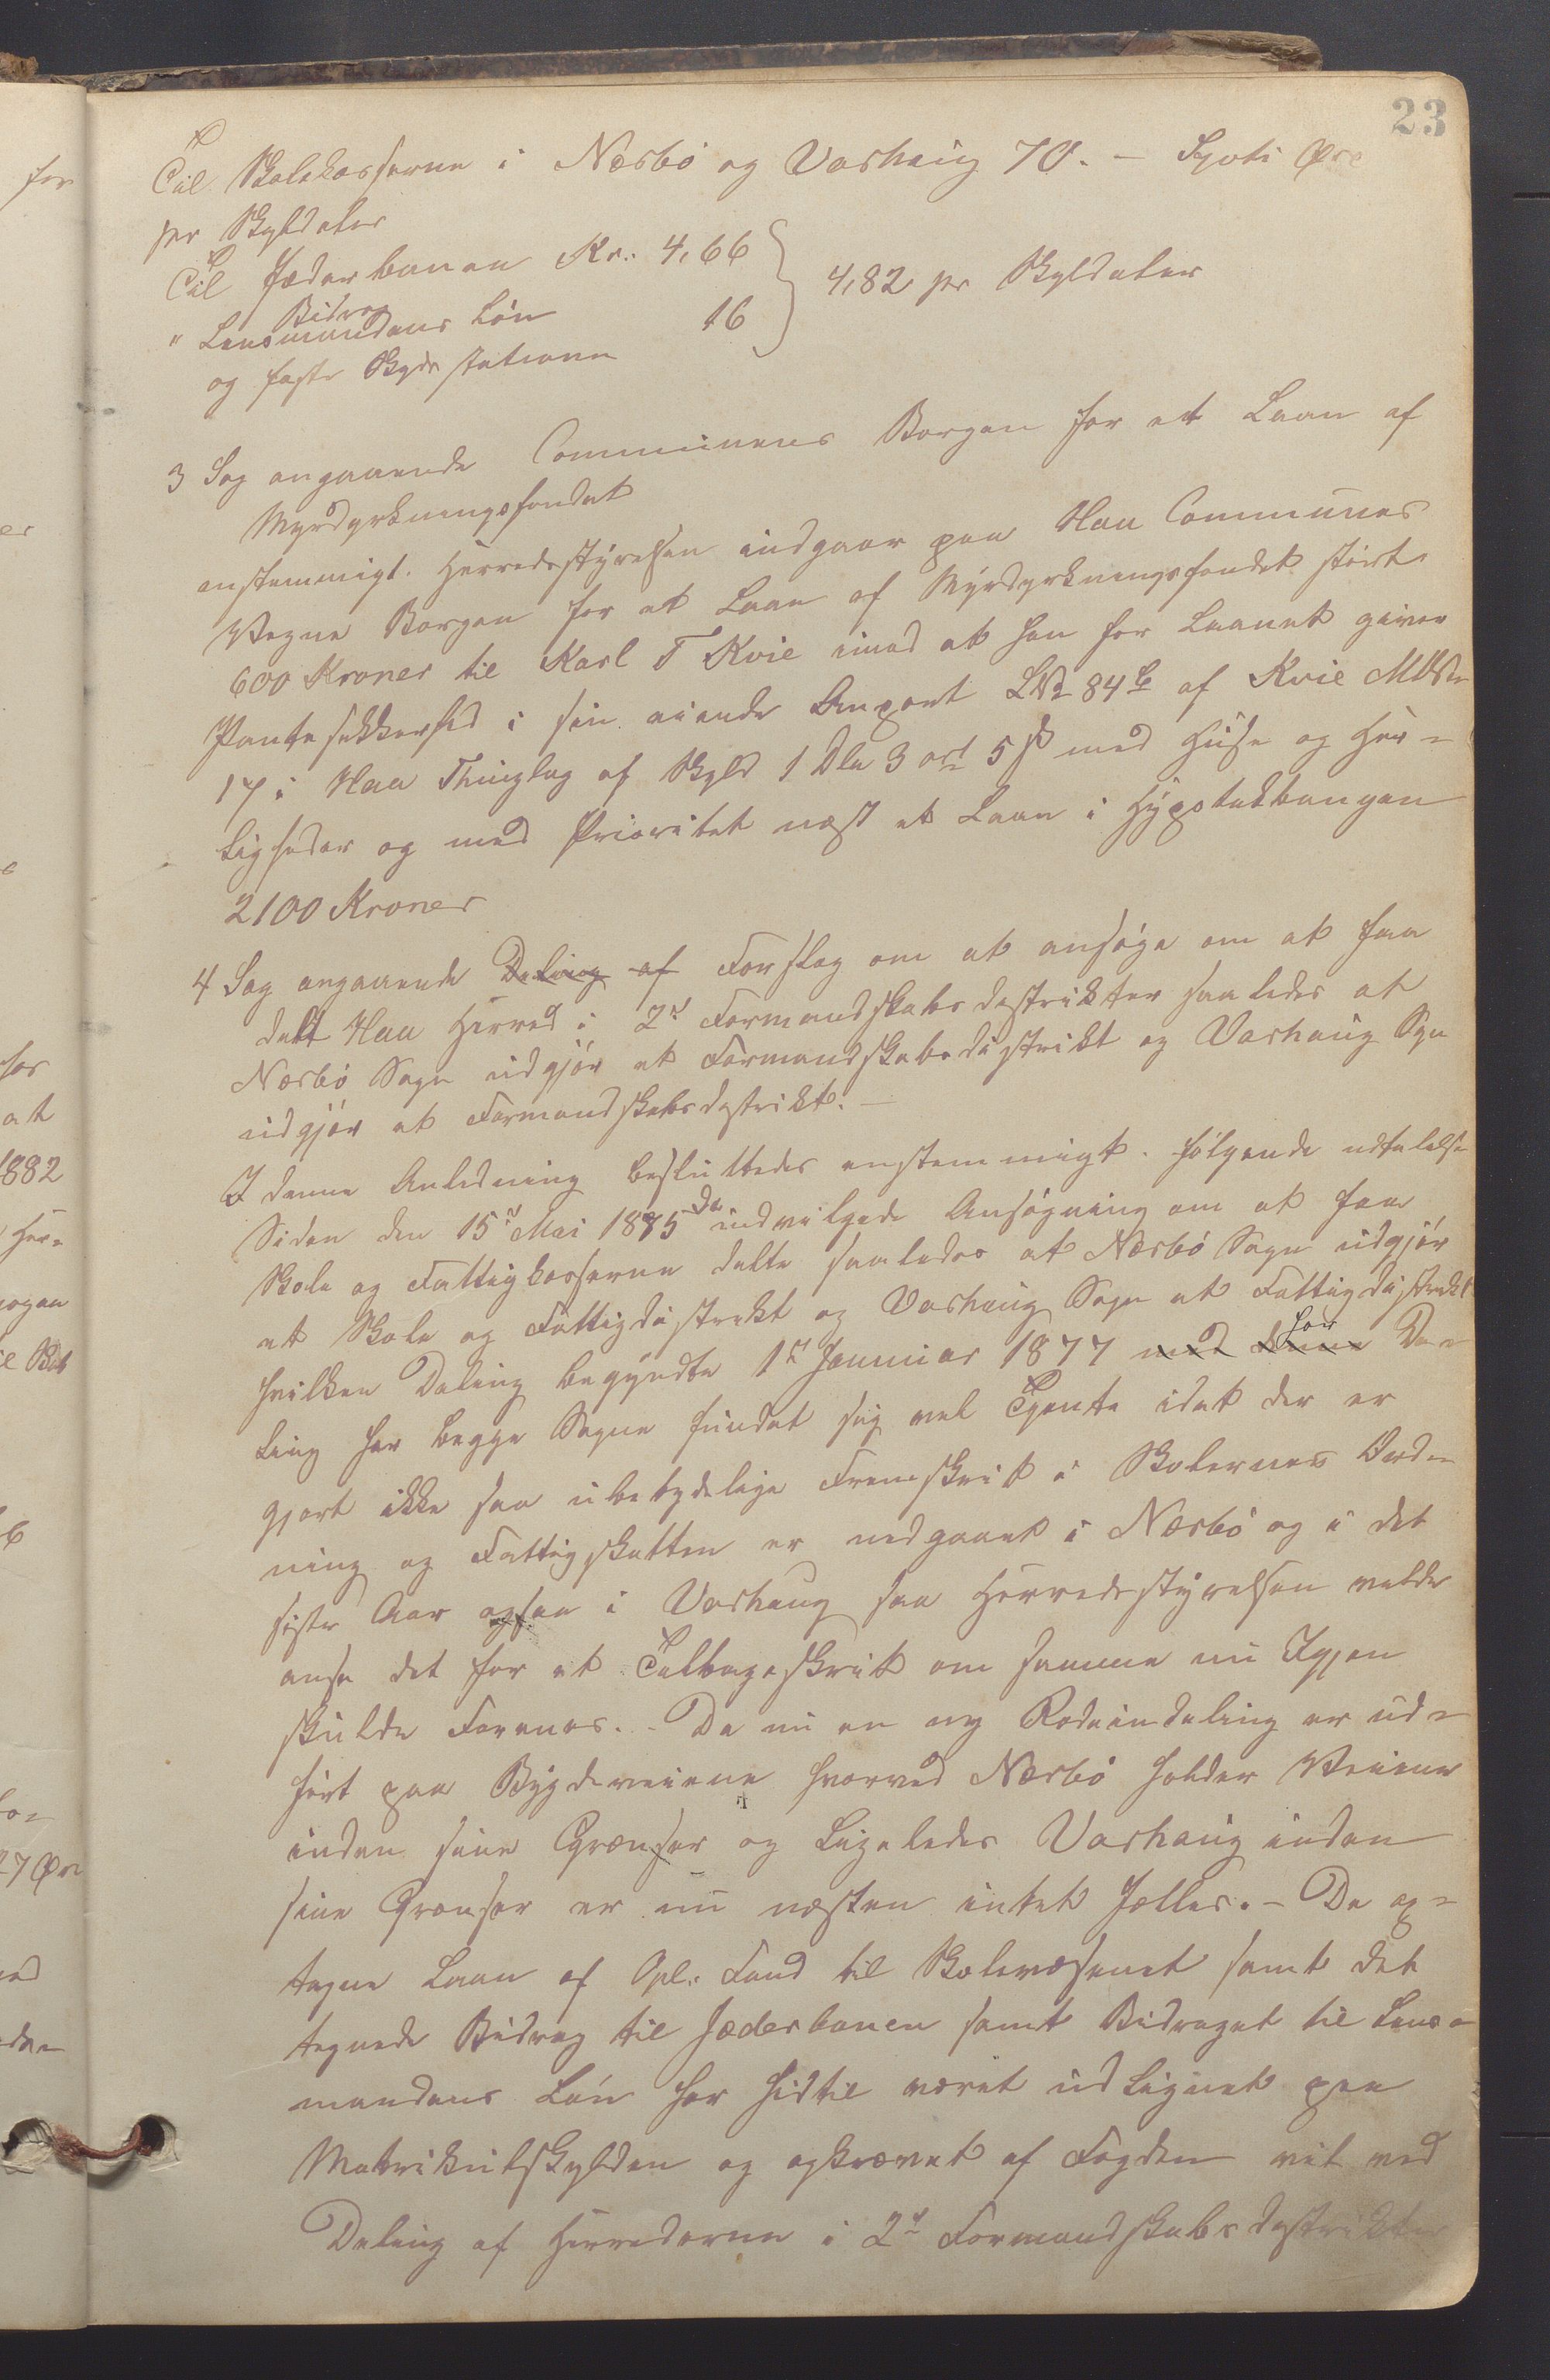 23
Til Skolekasserne i Nærbö og Varhaug 70. - Sytti Øre
pr Skylddaler
Til Jæderbanen Kr. 4,66
4,82 pr Skylddaler
Bidrag
" Lensmandens Lön 16
og faste Skydsstationer
3 Sag angaaende Communens Borgen for et Laan af
Myrdyrkningsfondet
enstemmigt. Herredsstyrelsen indgaar paa Haa Communes
Vegne Borgen for et Laan af Myrdyrkningsfondet stort
600 Kroner til Karl T Kvie imod at han for Laanet giver
Pantesikkerhed i sin eiende Anpart LNr 84 b af Kvie MNr
17 i Haa Thinglag af Skyld 1 Dlr 3 ort 5 ß med Huse og Her=
ligheder og med Prioritet næst et Laan i Hypotekbangen
2100 Kroner
4 Sag angaaende Deling af Forslag om at ansöge om at faa
delt Haa Herred i 2de Formandskabsdistrikter saaledes at
Nærbö Sogn udgjör et Formandskabsdistrikt og Varhaug Sgn
udgjör et Formandskabsdistrikt. -
I denne Anledning besluttedes enstemmigt. følgende udtalelse
Siden den 15de Mai 1875 da indvilgede Ansögning om at faa
Skole og Fattigkasserne delte saaledes at Nærbö Sogn udgjör
et Skole og Fattigdistrikt og Varhaug Sogn et Fattigdistrikt
hvilken Deling begyndte 1ste Januar 1877 med denne De=
ling har begge Sogne fundet sig vel Tjente idet der er
gjort ikke saa ubetydelige Fremskrit i Skolernes Ord=
ning og Fattigskatten er nedgaaet i Nærbö og i det
siste Aar ogsaa i Varhaug saa Herredsstyrelsen vilde
anse det for et Tilbageskrit om samme nu Igjen
skulde Forenes. - Da nu en ny Rodeindeling er ud=
fört paa Bygdeveiene hvorved Nærbö holder Veiene
inden sine Grænser og Ligeledes Varhaug inden
sine Grænser er nu næsten intet fælles. - De op=
tagne Laan af Opl. Fond til Skolevæsenet samt det
tegnede Bidrag til Jæderbanen samt Bidraget til Lens=
mandens Lön har hidtil været udlignet paa
Matrikulskylden og opkrævet af Fogden vil ved
Deling af Herrederne i 2de Formandskabsdistrikter